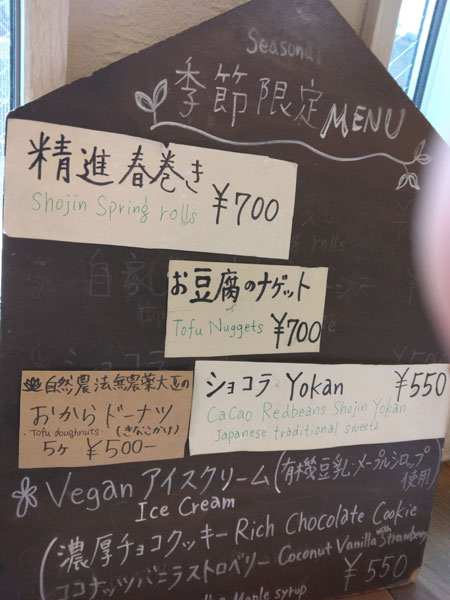 Seasonal
季節限定 MENU
精進春巻き ¥700
Shojin Spring rolls
お豆腐のナゲット
Tofu Nuggets ¥700
自然農法無農薬大豆の
おからドーナツ
Tofu doughnuts. (きなこがけ)
5ヶ ¥500-
ショコラ Yokan ¥550
CaCao Redbeans Shojin Yokan
Japanese traditional sweets
Vegan アイスクリーム (有機豆乳・メープルシロップ使用)
Ice Cream
(濃厚チョコクッキー Rich Chocolate Cookie
ココナッツバニラストロベリー Coconut Vanilla with Strawberry
¥550
Maple syrup